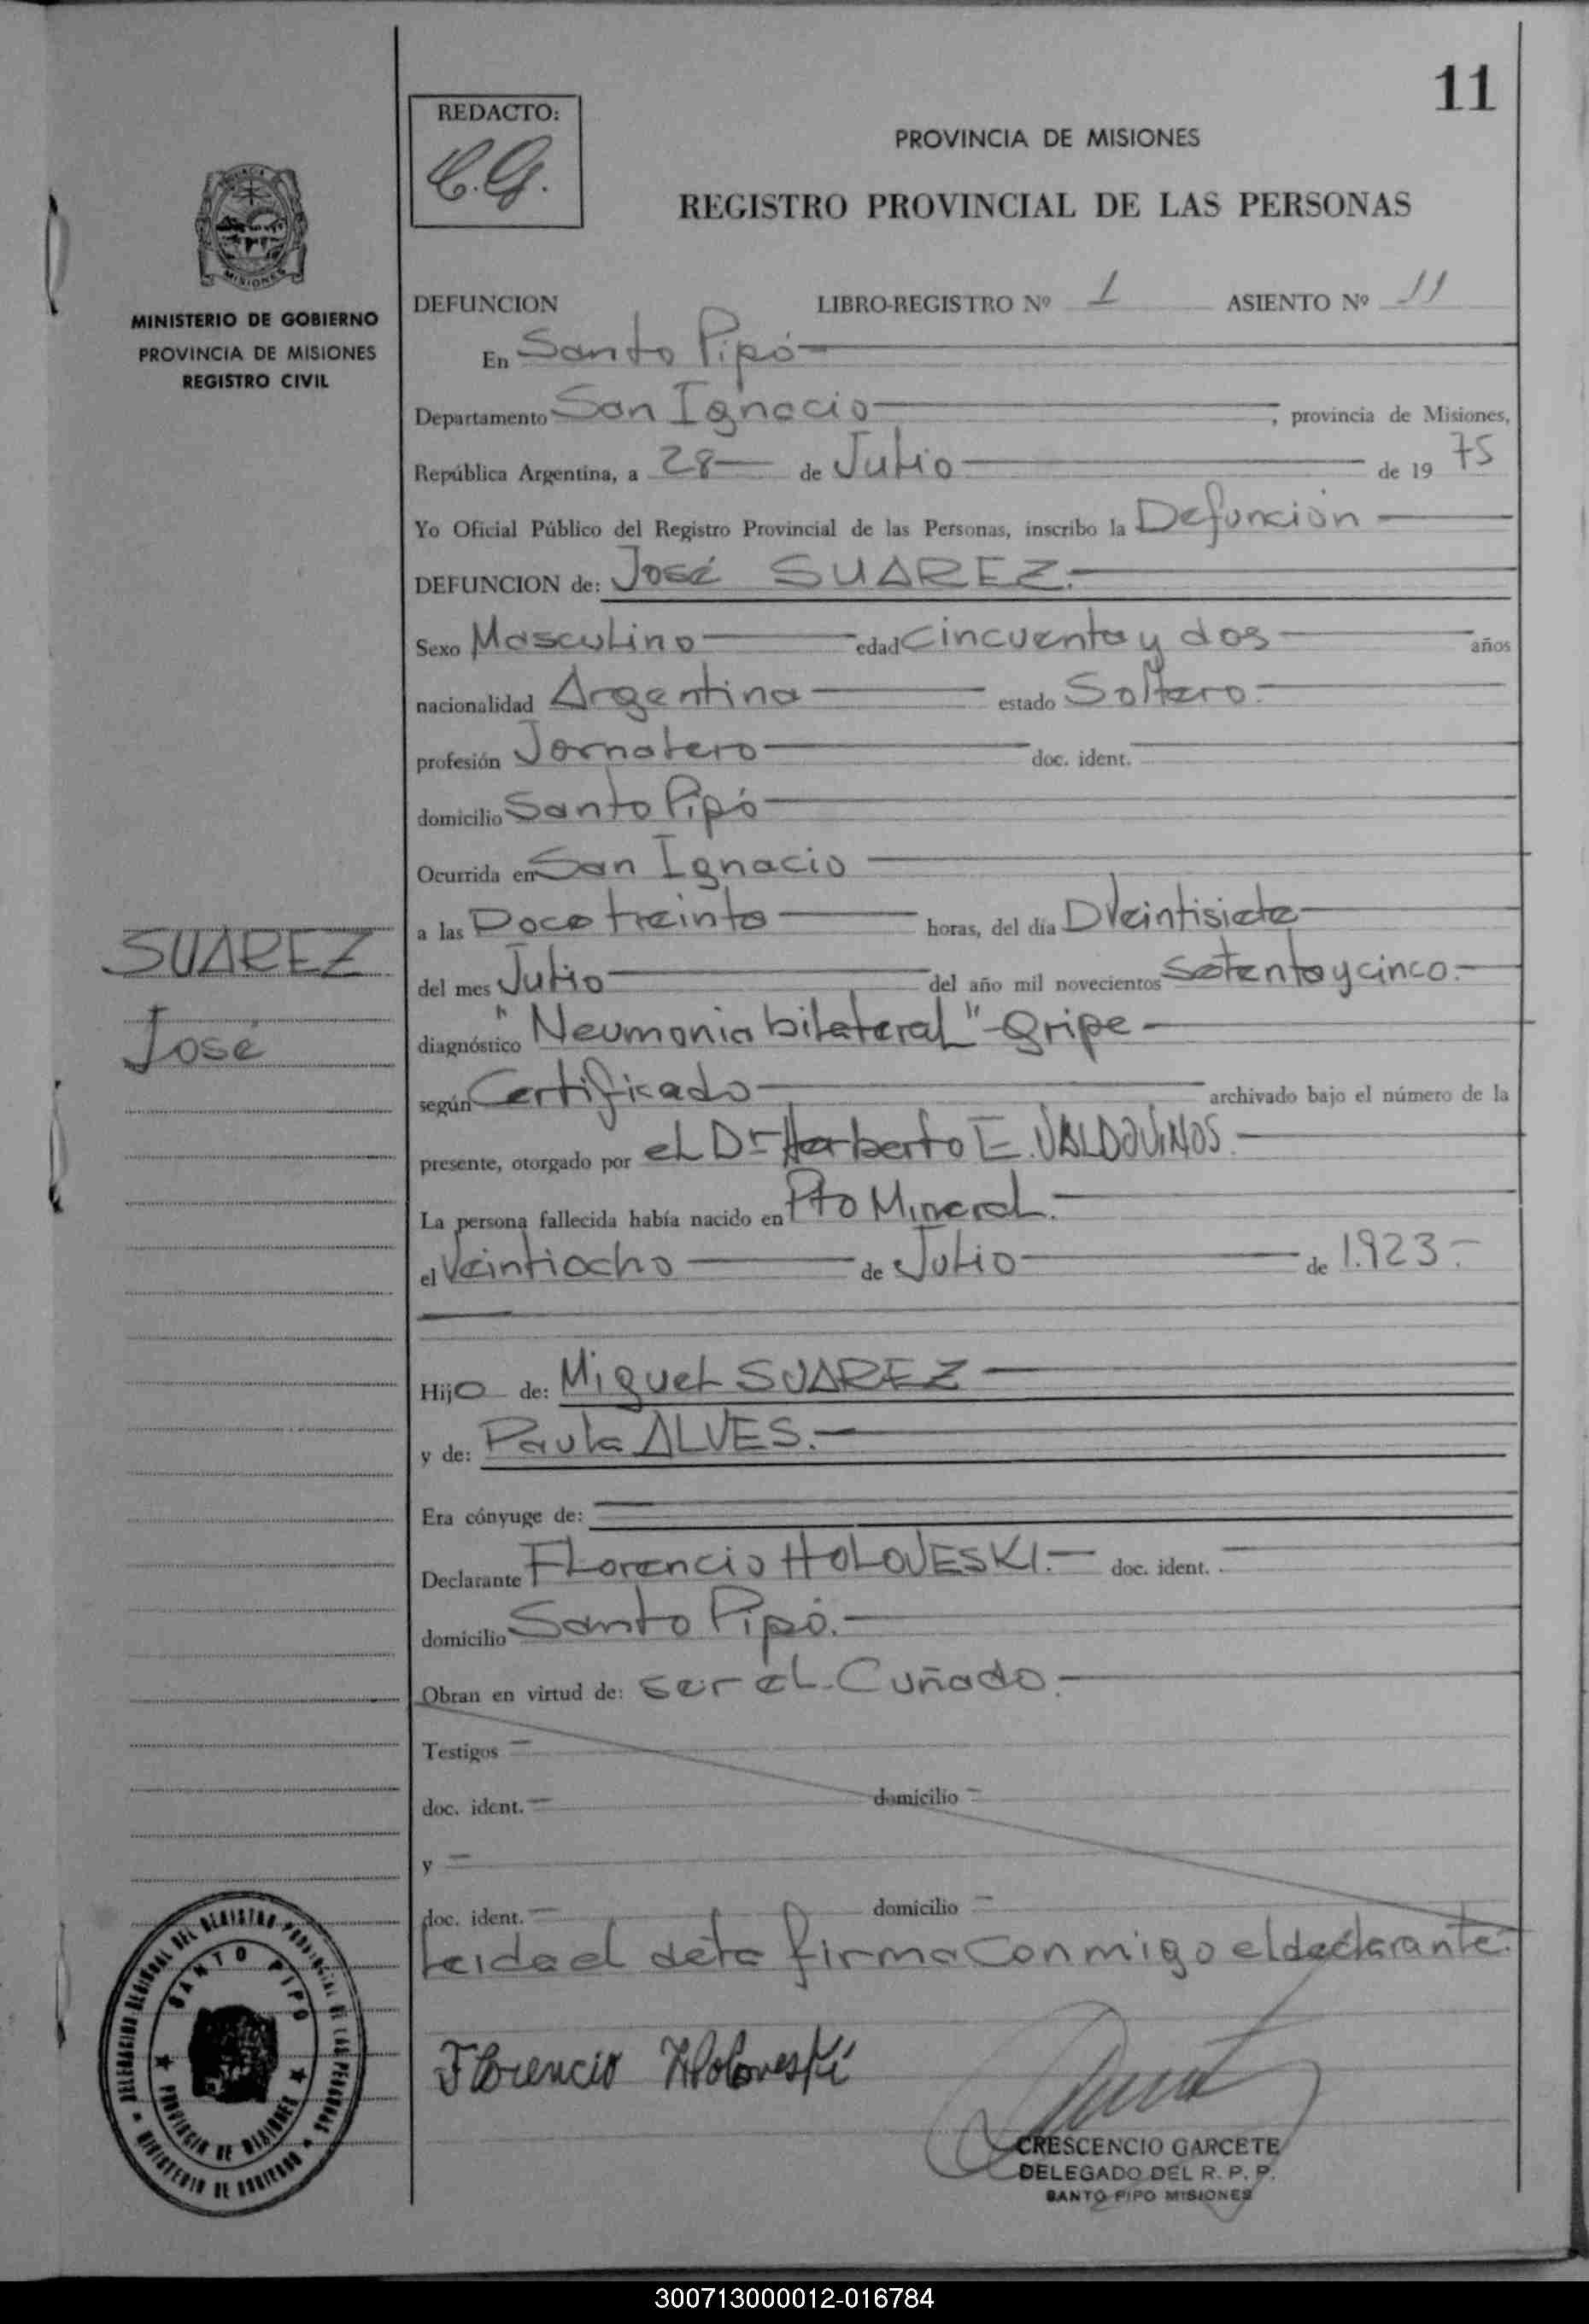 11
REDACTO:
C.G.
PROVINCIA DE MISIONES
REGISTRO PROVINCIAL DE LAS PERSONAS
MISIONES
MINISTERIO DE GOBIERNO
PROVINCIA DE MISIONES
REGISTRO CIVIL
DEFUNCION LIBRO-REGISTRO Nº 1 ASIENTO Nº 11
En Santo Pipó
Departamento San Ignacio, provincia de Misiones,
República Argentina, a 28 de Julio de 19 75
Yo Oficial Público del Registro Provincial de las Personas, inscribo la Defunción
DEFUNCION de: José SUAREZ.
Sexo Masculino edad Cincuenta y dos años
nacionalidad Argentina estado Soltero.
profesión Jornalero doc. ident.
domicilio Santo Pipó
Ocurrida en San Ignacio
a las Doce treinta horas, del día Veintisiete
SUAREZ
del mes Julio del año mil novecientos setenta y cinco.
José
diagnóstico "Neumonia bilateral" - Gripe
según Certificado archivado bajo el número de la
presente, otorgado por el Dr Herberto E. VALDOVINOS.
La persona fallecida había nacido en Pto Mineral.
el Veintiocho de Julio de 1.923.-
Hijo de: Miguel SUAREZ
y de: Paula ALVES.
Era cónyuge de:
Declarante Florencio HOLOVESKI. doc. ident.
domicilio Santo Pipó.
Obran en virtud de: ser el Cuñado.
Testigos
doc. ident. domicilio
y
doc. ident. domicilio
Leida el acta firma conmigo el declarante.
Florencio Holoveski
CRESCENCIO GARCETE
DELEGADO DEL R. P. P.
SANTO PIPO MISIONES
DELEGACION REGIONAL DEL REGISTRO PROVINCIAL DE LAS PERSONAS
SANTO PIPO
PROVINCIA DE MISIONES
MINISTERIO DE GOBIERNO
300713000012-016784